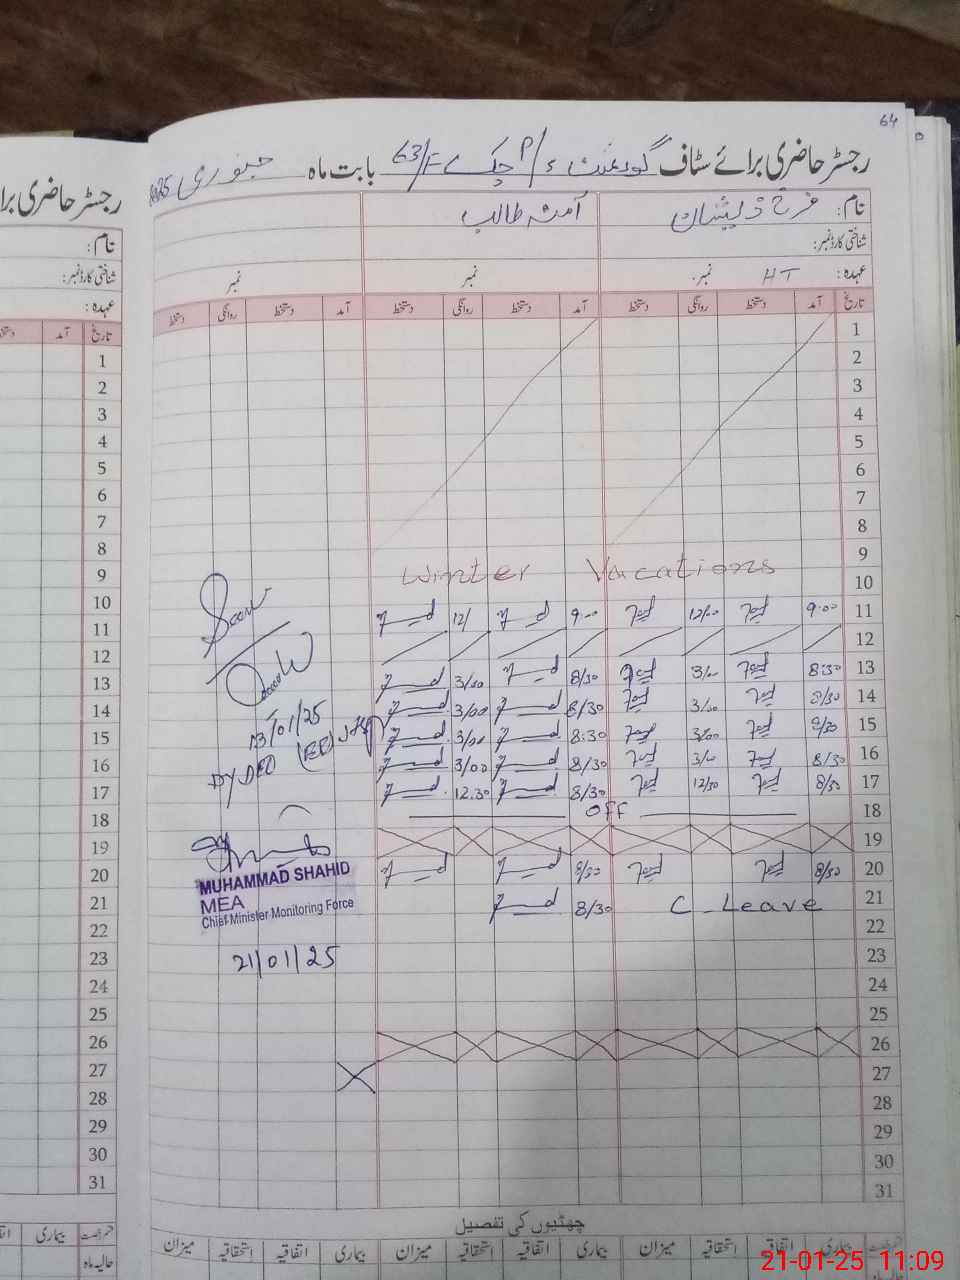 64
رجسٹر حاضری برائے سٹاف گورنمنٹ P/S چک 63/F بابت ماہ جنوری 2025
نام: فرح ذیشان آمنہ طالب
شناختی کارڈ نمبر:
عہدہ: HT نمبر: نمبر نمبر
تاریخ آمد دستخط روانگی دستخط آمد دستخط روانگی دستخط آمد دستخط روانگی دستخط
1
2
3
4
5
6
7
8
9
Winter Vacations
10
11 9:00 12/00 9:00 12/
12
13 8:30 3/00 8/30 3/00
14 8/30 3/00 8/30 3/00
15 8/30 3/00 8:30 3/00
16 8/30 3/00 8/30 3/00
17 8/30 12/30 8/30 12.30
18 OFF
19
20 8/30 8/30
21 C_Leave 8/30
22
23
24
25
26
27
28
29
30
31
13/01/25
DY DEO
MUHAMMAD SHAHID
MEA
Chief Minister Monitoring Force
21/01/25
چھٹیوں کی تفصیل
قسم رخصت بیماری اتفاقیہ استحقاقیہ میزان بیماری اتفاقیہ استحقاقیہ میزان بیماری اتفاقیہ استحقاقیہ میزان
حالیہ ماہ
رجسٹر حاضری برا
نام:
شناختی کارڈ نمبر:
عہدہ:
تاریخ آمد
1
2
3
4
5
6
7
8
9
10
11
12
13
14
15
16
17
18
19
20
21
22
23
24
25
26
27
28
29
30
31
قسم رخصت بیماری
حالیہ ماہ
21-01-25 11:09